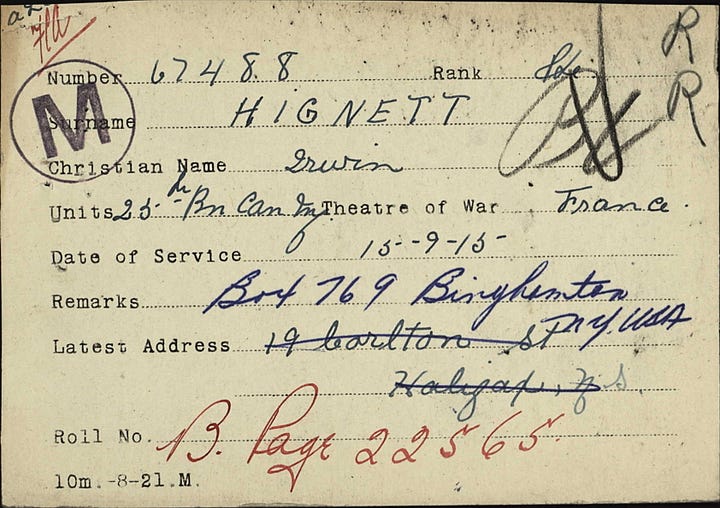 Number 67488 Rank Pte
R
R
M
Surname HIGNETT
Christian Name Irwin
Units 25th Bn Can Inf Theatre of War France.
Date of Service 15-9-15
Remarks Box 769 Binghemton
N Y, USA
Latest Address 19 Carlton St
Halifax, N S.
Roll No. B. Page 22565.
10m.-8-21.M.